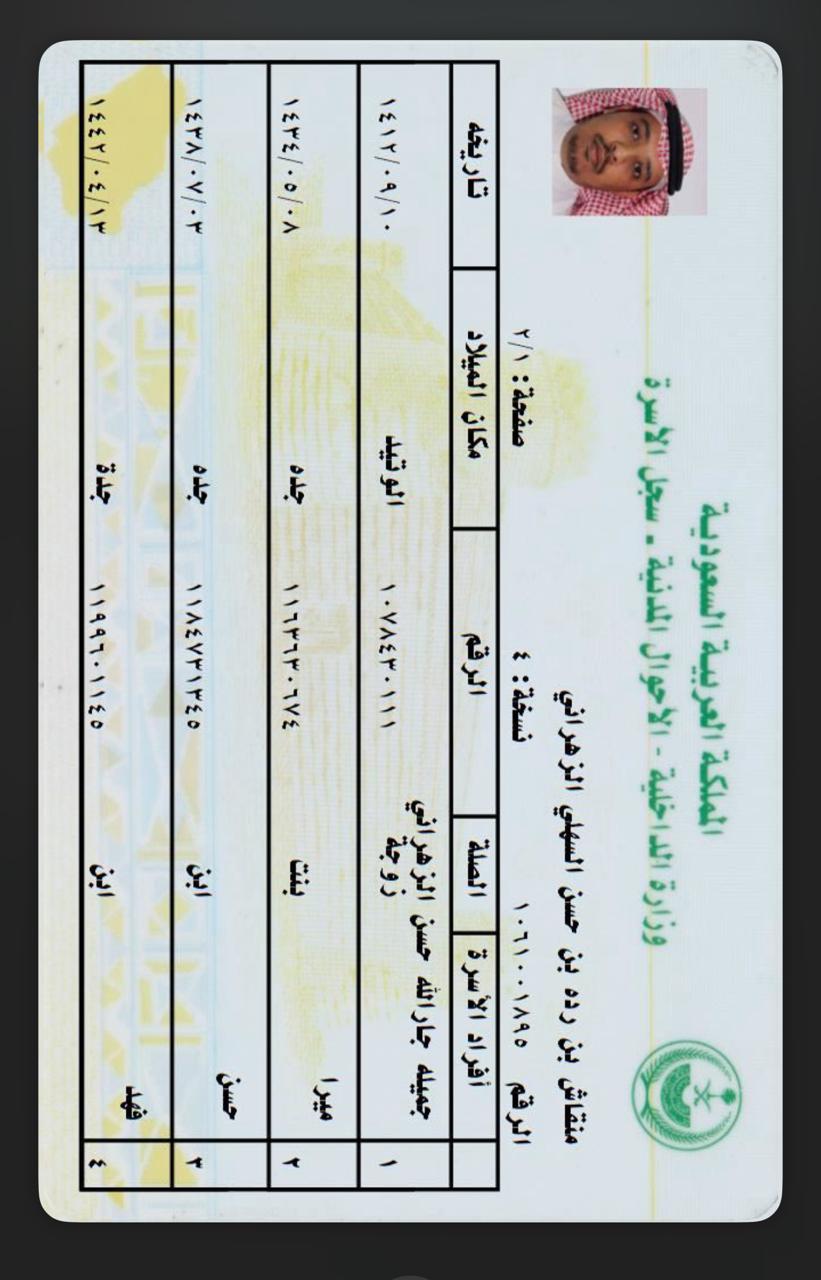 المملكة العربية السعودية
وزارة الداخلية - الأحوال المدنية - سجل الأسرة
منقاش بن رده بن حسن السهلي الزهراني
الرقم ١٠٦١٠٠١٨٩٥ نسخة : ٤ صفحة : ٢/١
أفراد الأسرة الصلة الرقم مكان الميلاد تاريخه
١ جميله جارالله حسن الزهراني زوجة ١٠٧٨٤٣٠١١١ الوتيد ١٤١٢/٠٩/١٠
٢ ميرا بنت ١١٦٣٦٣٠٦٧٤ جده ١٤٣٤/٠٥/٠٨
٣ حسن ابن ١١٨٤٧٣١٣٤٥ جده ١٤٣٨/٠٧/٠٣
٤ فهد ابن ١١٩٩٦٠١١٤٥ جدة ١٤٤٢/٠٤/١٣